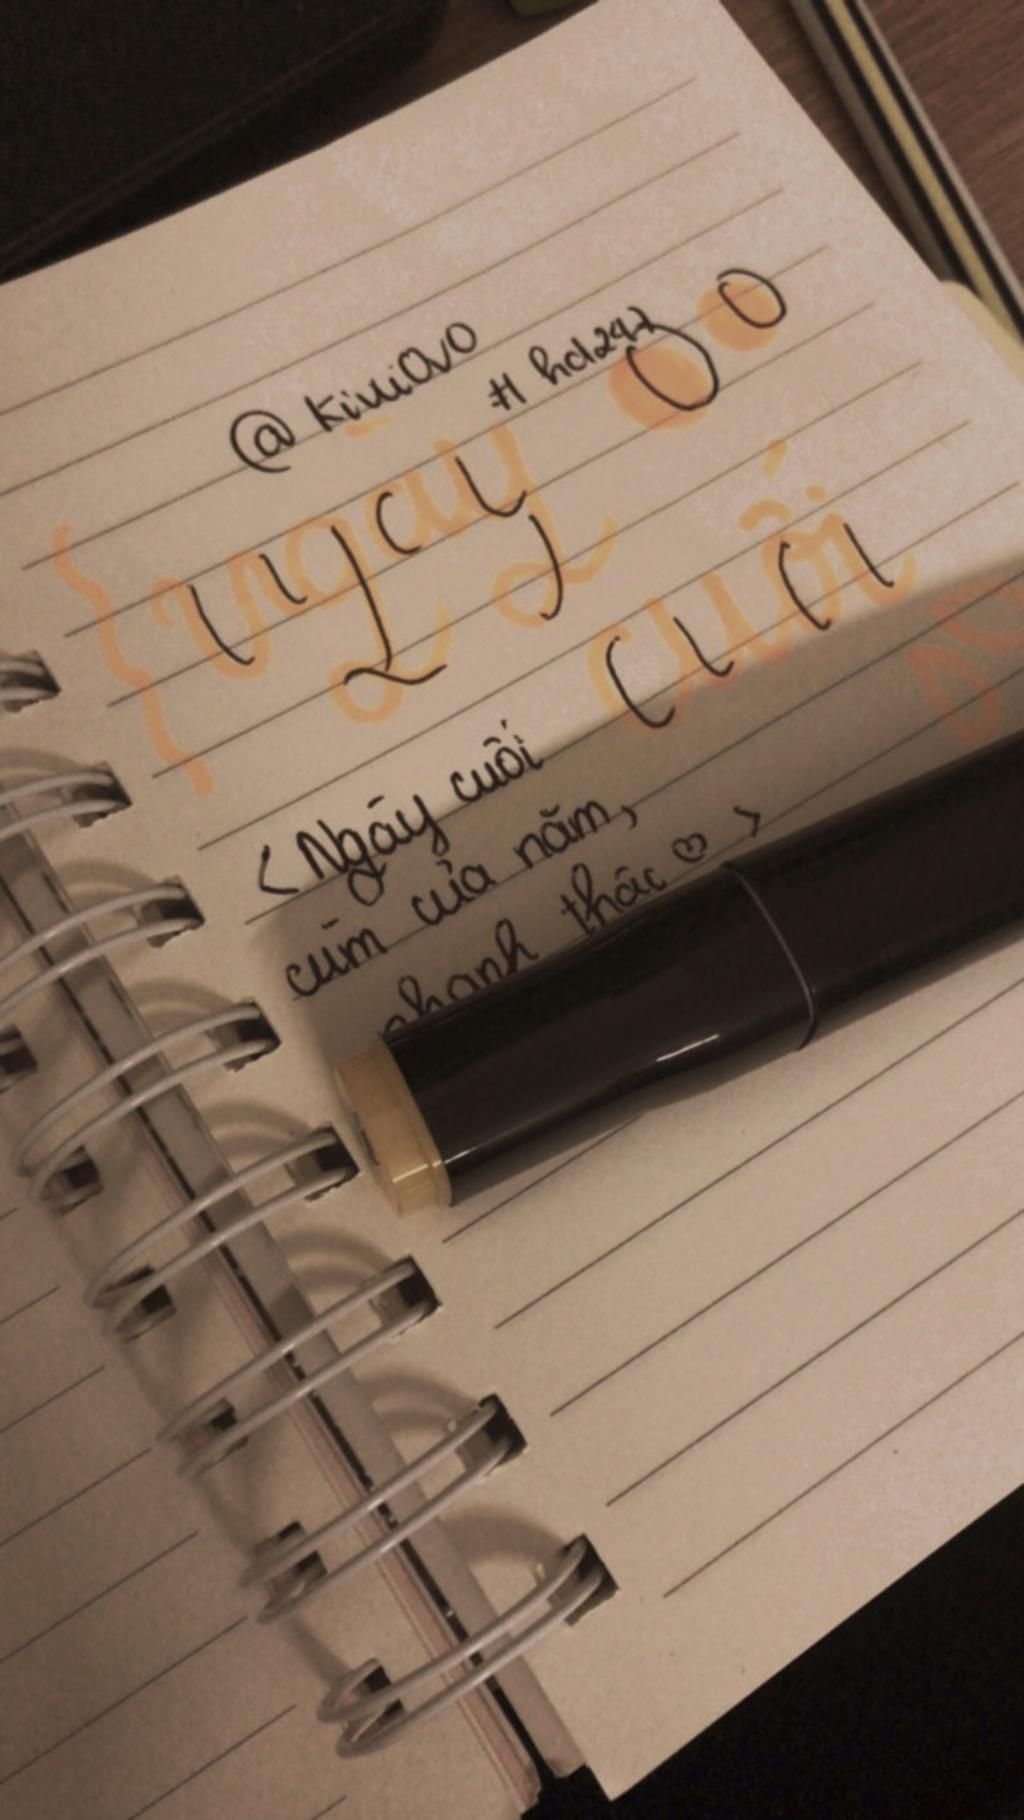 @kiwi0v0
#hd247
ngày
cuối
<Ngày cuối
cùm của năm,
nhanh thác ♡>